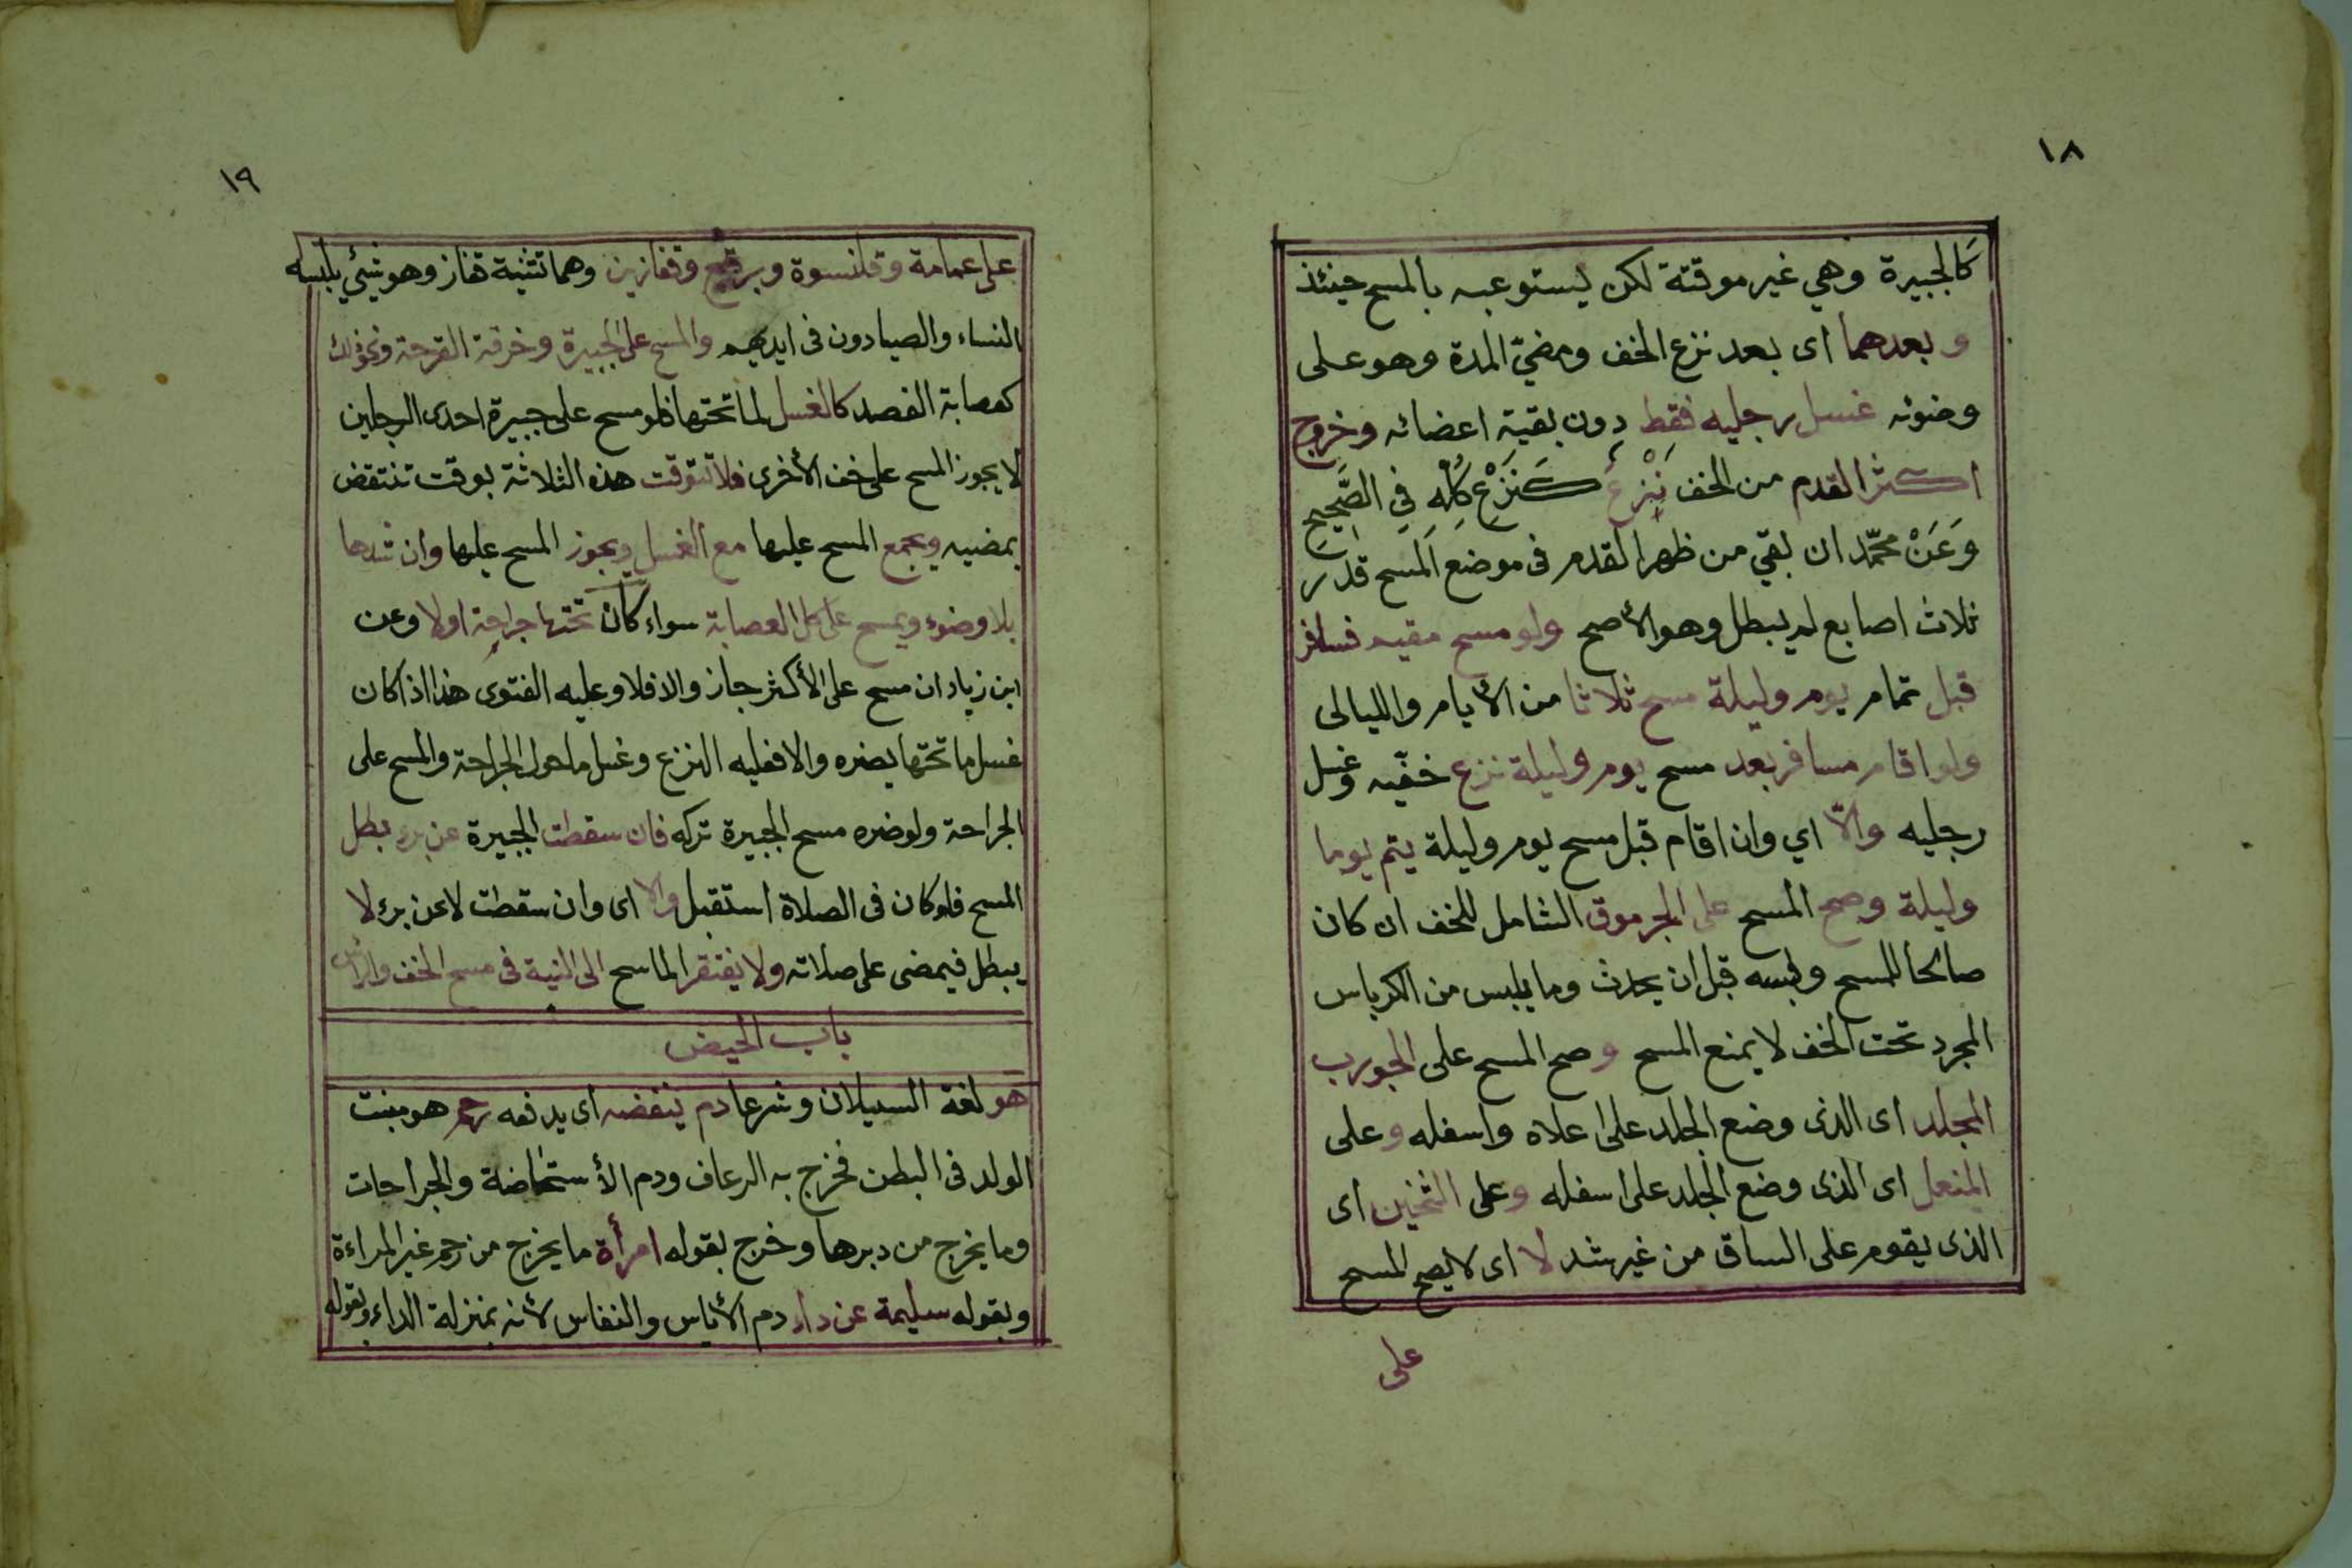 ١٨
كَالجبيرة وهي غير موقتة لكن ليستوعبه بالمسح حينئذ
وبعدهما اى بعد نزع الخف ومضيّ المدة وهو على
وضوئه غسل رجليه فقط دون بقية اعضائه وخروج
اكثر القدم من الخف نَزْعٌ كَنَزْعِ كُلِّهِ فِي الصَّحِيحِ
وَعَنْ محمّد ان بقي من ظهر القدم فى موضع المسح قدر
ثلاث اصابع لم يبطل وهو الأصح ولو مسح مقيم فسافر
قبل تمام يوم وليلة مسح ثلاثا من الأيام والليالى
ولو اقام مسافر بعد مسح يوم وليلة نزع خفّيه وغسل
رجليه والّا اي وان اقام قبل مسح يوم وليلة يتم يوما
وليلة وصح المسح على الجرموق الشامل للخف ان كان
صالحا للمسح ولبسه قبل ان يحدث وما يلبس من الكرباس
المجرد تحت الخف لا يمنع المسح وصح المسح على الجورب
المجلد اى الذى وضع الجلد على اعلاه واسفله وعلى
المنعل اى الذى وضع الجلد على اسفله وعلى الثخين اى
الذى يقوم على الساق من غير شد لا اى لا يصح المسح
على
١٩
على عمامة وقلنسوة وبرقع وقفازين وهما تثنية قفاز وهو شيئي يلبسه
النساء والصيادون فى ايديهم والمسح على الجبيرة وخرقة القرحة ونحو ذلك
كعصابة الفصد كالغسل لما تحتها فلو مسح على جبيرة احدى الرجلين
لا يجوز المسح على خف الأخرى فلا تتوقت هذه الثلاثة بوقت تنتقض
بمضيه ويجمع المسح عليها مع الغسل ويجوز المسح عليها وان شدها
بلا وضوء ويمسح على كل العصابة سواء كان تحتها جراحة اولا وعن
ابن زياد ان مسح على الأكثر جاز والا فلا وعليه الفتوى هذا اذا كان
غسل ما تحتها يضره والا فعليه النزع وغسل ما حول الجراحة والمسح على
الجراحة ولو ضره مسح الجبيرة تركه فان سقطت الجبيرة عن برء بطل
المسح فلو كان فى الصلاة استقبل والا اى وان سقطت لا عن برء لا
يبطل فيمضى على صلاته ولا يفتقر الماسح الى النية فى مسح الخف والرأس
باب الحيض
هو لغة السيلان وشرعا دم ينفضه اى يدفعه رحم هو منبت
الولد فى البطن فخرج به الرعاف ودم الأستحاضة والجراحات
وما يخرج من دبرها وخرج بقوله امرأة ما يخرج من رحم غير المراءة
وبقوله سليمة عن داء دم الأياس والنفاس لأنه بمنزلة الداء وبقوله